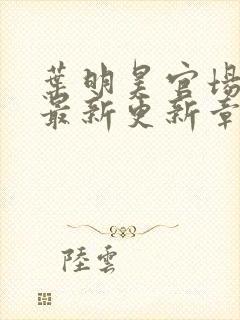 葉明昊官场
最新更新章
陸雲